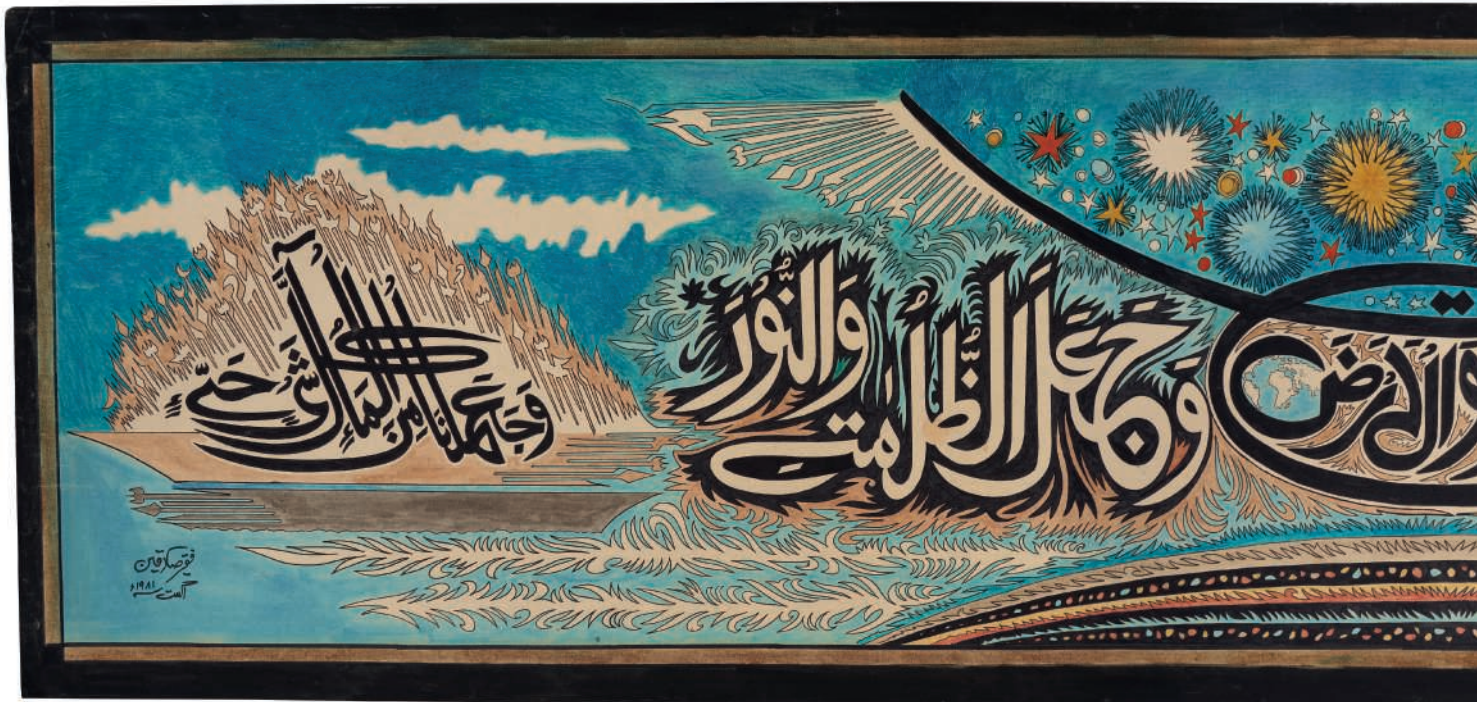 والأرض
وَجَعَلَ الظُّلُمٰتِ وَالنُّورَ
وَجَعَلْنَا مِنَ الْمَآءِ كُلَّ شَىْءٍ حَىٍّ
فقیر صادقین
اگست ۱۹۸۱ء